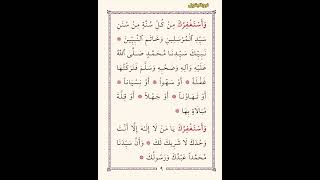 وَأَسْتَغْفِرُكَ مِنْ كُلِّ سُنَّةٍ مِنْ سُنَنِ
سَيِّدِ الْمُرْسَلِينَ وَخَاتَمِ النَّبِيِّينَ *
نَبِيِّكَ سَيِّدِنَا مُحَمَّدٍ صَلَّى اللهُ
عَلَيْهِ وَآلِهِ وَصَحْبِهِ وَسَلَّمَ فَتَرَكْتُهَا
غَفْلَةً * أَوْ سَهْواً * أَوْ نِسْيَاناً *
أَوْ تَهَاوُناً * أَوْ جَهْلاً * أَوْ قِلَّةَ
مُبَالَاةٍ بِهَا *
وَأَسْتَغْفِرُكَ يَا مَنْ لَا إِلٰهَ إِلَّا أَنْتَ
وَحْدَكَ لَا شَرِيكَ لَكَ * وَأَنَّ سَيِّدَنَا
مُحَمَّداً عَبْدُكَ وَرَسُولُكَ *
٩